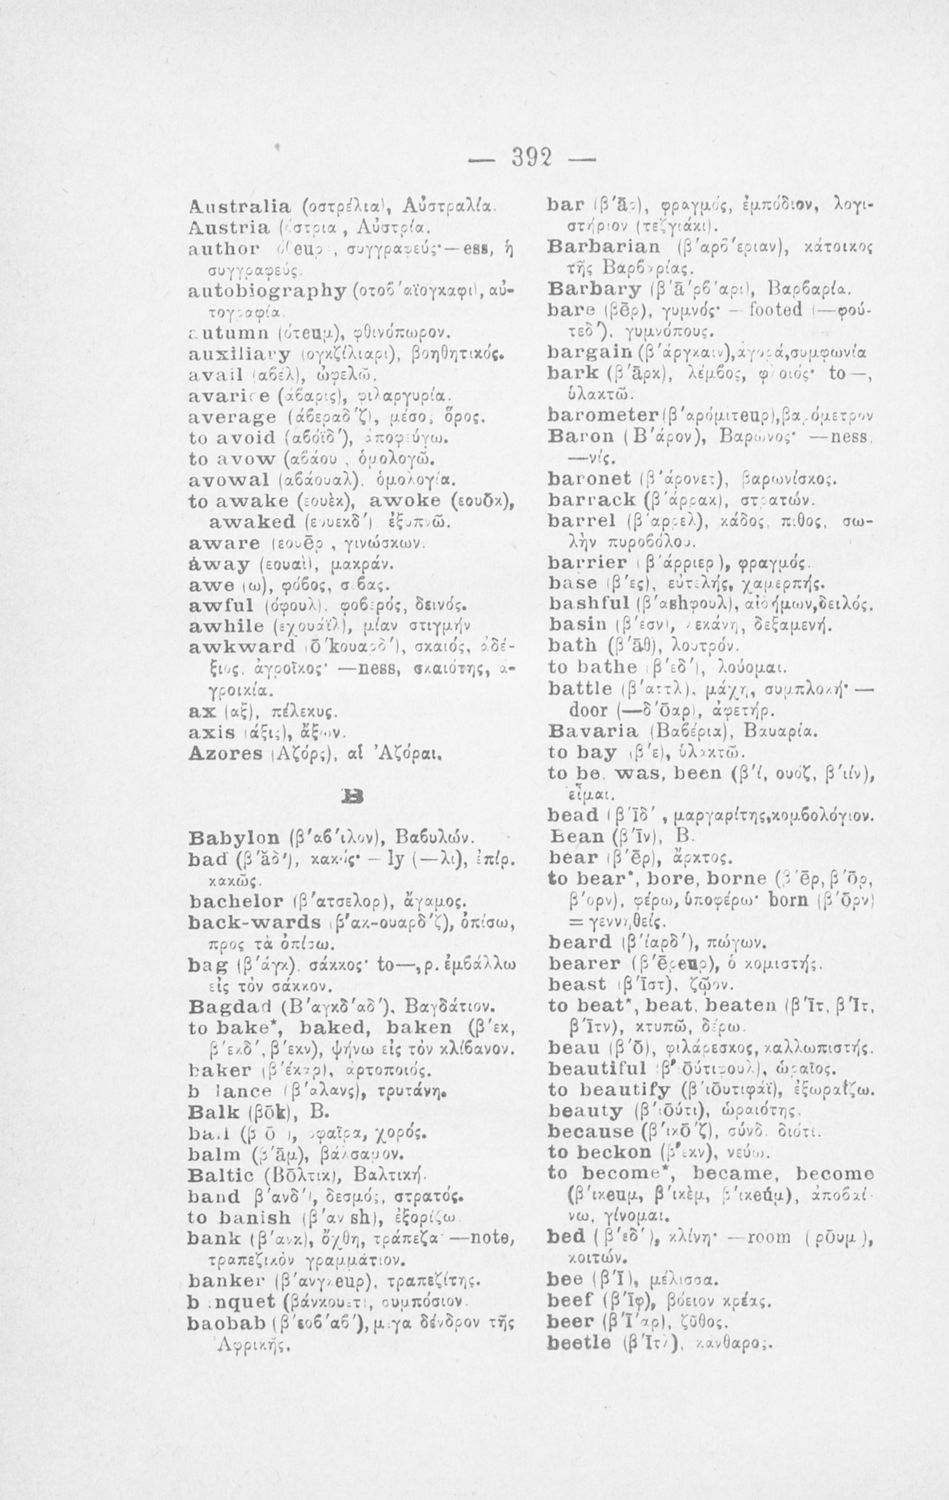 — 392 —
Australia (οστρέλια), Αὐστραλία.
Austria Αὐστρία.
author συγγραφεύς· — ess, ἡ
συγγραφεύς.
autobiography (οτοϐ'αϊογκαφι), αὐ-
τογραφία.
autumn (ότευμ), φθινόπωρον.
auxiliary (ογκζίλιαρι), βοηθητικός.
avail (αϐέλ), ὠφελῶ.
avarice (άϐαρις), φιλαργυρία.
average (άϐεραδ'ζ), μέσος ὅρος.
to avoid (αϐόϊδ'), ἀποφεύγω.
to avow (αϐάου), ὁμολογῶ.
avowal (αϐάουαλ), ὁμολογία.
to awake (εουὲκ), awoke (εουδκ),
awaked (εουεκδ') ἐξυπνῶ.
aware (εουε̄ρ), γινώσκων.
away (εουαὶ), μακράν.
awe (ω), φόϐος, σέϐας.
awful (όφουλ), φοϐερός, δεινός.
awhile (εχουάϊλ), μίαν στιγμήν
awkward (ο̄'κουαρδ'), σκαιός, ἀδέ-
ξιος, ἀγροῖκος· —ness, σκαιότης, ἀ-
γροικία.
ax (αξ), πέλεκυς.
axis (άξις), ἄξων.
Azores (Αζόρς), αἱ Ἀζόραι.
B
Babylon (β'αϐ'ιλον), Βαϐυλών.
bad (β'ᾱδ'), κακός· — ly (—λι), ἐπίρ.
κακῶς.
bachelor (β'ατσελορ), ἄγαμος.
back-wards (β'ακ-ουαρδ'ζ), ὀπίσω,
προς τὰ ὀπίσω.
bag (β'άγκ), σάκκος· to—, ρ. ἐμϐάλλω
εἰς τὸν σάκκον.
Bagdad (Β'αγκδ'αδ'), Βαγδάτιον.
to bake*, baked, baken (β'εκ,
β'εκδ', β'εκν), ψήνω εἰς τὸν κλίϐανον.
baker (β'έκερ), ἀρτοποιός.
b lance (β'αλανς), τρυτάνη.
Balk (βο̄k), Β.
ball σφαῖρα, χορός.
balm (β'ᾱμ), βάλσαμον.
Baltic (Βο̄λτικ), Βαλτική.
band β'ανδ'), δεσμός, στρατός.
to banish (β'αν sh), ἐξορίζω
bank (β'ανκ), ὄχθη, τράπεζα· —note,
τραπεζικὸν γραμμάτιον.
banker (β'ανγκeuρ), τραπεζίτης.
b nquet (βάνκουετ), συμπόσιον.
baobab (β'εοϐ'αϐ'), μέγα δένδρον τῆς
Ἀφρικῆς.
bar (β'ᾱρ), φραγμός, ἐμπόδιον, λογι-
στήριον (τεζγιάκι).
Barbarian (β'αρϐ'εριαν), κάτοικος
τῆς Βαρϐαρίας.
Barbary (β'ᾱ'ρϐ'αρι), Βαρϐαρία.
bare (βε̄ρ), γυμνός· — footed (—φού-
τεδ'), γυμνόπους.
bargain (β'άργκαιν), ἀγορά, συμφωνία
bark (β'ᾱρκ), λέμϐος, φλοιός· to —,
ὑλακτῶ.
barometer (β'αρόμιτeuρ), βαρόμετρον
Baron (Β'άρον), Βαρῶνος· —ness.
—νίς.
baronet (β'άρονετ), βαρωνίσκος.
barrack (β'άρρακ), στρατών.
barrel (β'αρρελ), κάδος, πίθος, σω-
λὴν πυροϐόλου.
barrier (β'άρριερ), φραγμός.
base (β'ες), εὐτελής, χαμερπής.
bashful (β'αshφουλ), αἰδήμων, δειλός.
basin (β'έσν), λεκάνη, δεξαμενή.
bath (β'ᾱθ), λουτρόν.
to bathe (β'εδ'), λούομαι.
battle (β'αττλ), μάχη, συμπλοκή· —
door (—δ'ο̄αρ), ἀφετήρ.
Bavaria (Βαϐέρια), Βαυαρία.
to bay (β'ε), ὑλακτῶ.
to be, was, been (β'ί, ουόζ, β'ιίν),
εἶμαι.
bead (β'ῑδ', μαργαρίτης, κομϐολόγιον.
Bean (β'ῑν), Β.
bear (β'ε̄ρ), ἄρκτος.
to bear*, bore, borne (β'ε̄ρ, β'ο̄ρ,
β'ορν), φέρω, ὑποφέρω· born (β'ο̄ρν)
= γεννηθείς.
beard (β'ίαρδ'), πώγων.
bearer (β'ε̄ρeuρ), ὁ κομιστής.
beast (β'ῑστ), ζῷον.
to beat*, beat, beaten (β'ῑτ, β'ῑτ,
β'ῑτν), κτυπῶ, δέρω.
beau (β'ο̄), φιλάρεσκος, καλλωπιστής.
beautiful (β'ο̄ύτιφουλ), ὡραῖος.
to beautify (β'ιο̄υτιφάϊ), ἐξωραΐζω.
beauty (β'ιο̄ύτι), ὡραιότης.
because (β'ικο̄'ζ), σύνδ. διότι.
to beckon (β'εκν), νεύω.
to become*, became, become
(β'ικeuμ, β'ικὲμ, β'ικeúμ), ἀποϐαί-
νω, γίνομαι.
bed (β'εδ'), κλίνη· —room (ρο̄υμ),
κοιτών.
bee (β'ῑ), μέλισσα.
beef (β'ῑφ), βόειον κρέας.
beer (β'ῑ'αρ), ζῦθος.
beetle (β'ῑτλ), κάνθαρος.